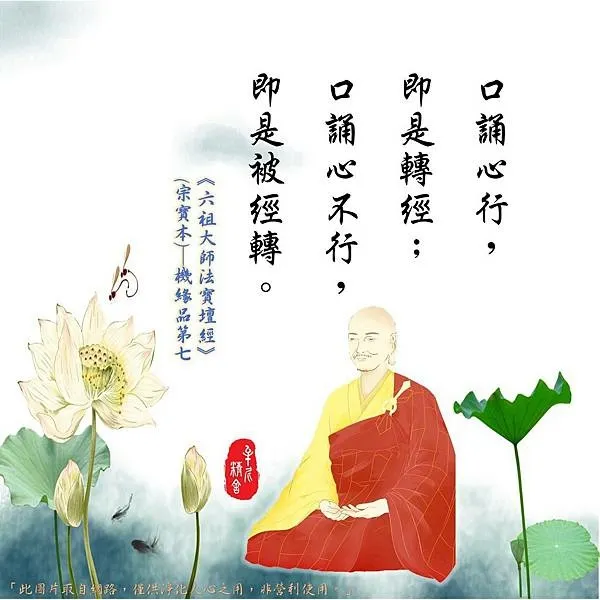 口誦心行，
即是轉經；
口誦心不行，
即是被經轉。
《六祖大師法寶壇經》
(宗寶本)—機緣品第七
精舍
「此圖片取自網路，僅供淨化人心之用，非營利使用。」